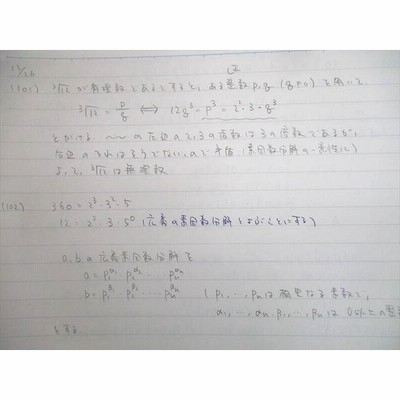 12/26
(101) ³√12 が有理数であるとすると、ある整数 p, q (q≠0) を用いて、
³√12 = p/q ⟺ 12q³ = p³ = 2²·3·q³
とかける. 〜〜 の左辺の2,3の指数は3の倍数であるが、
右辺のそれはそうでないので矛盾. (素因数分解の一意性に)
よって、³√12 は無理数.
(102) 360 = 2³·3²·5
12 = 2²·3·5⁰ (広義の素因数分解とよぶことにする)
a, b の広義素因数分解を
a = p₁^α₁ p₂^α₂ ⋯ pₙ^αₙ
b = p₁^β₁ · p₂^β₂ ⋯ pₙ^βₙ
( p₁, ⋯, pₙ は相異なる素数で、
α₁, ⋯, αₙ, β₁, ⋯, βₙ は 0以上の整
とする